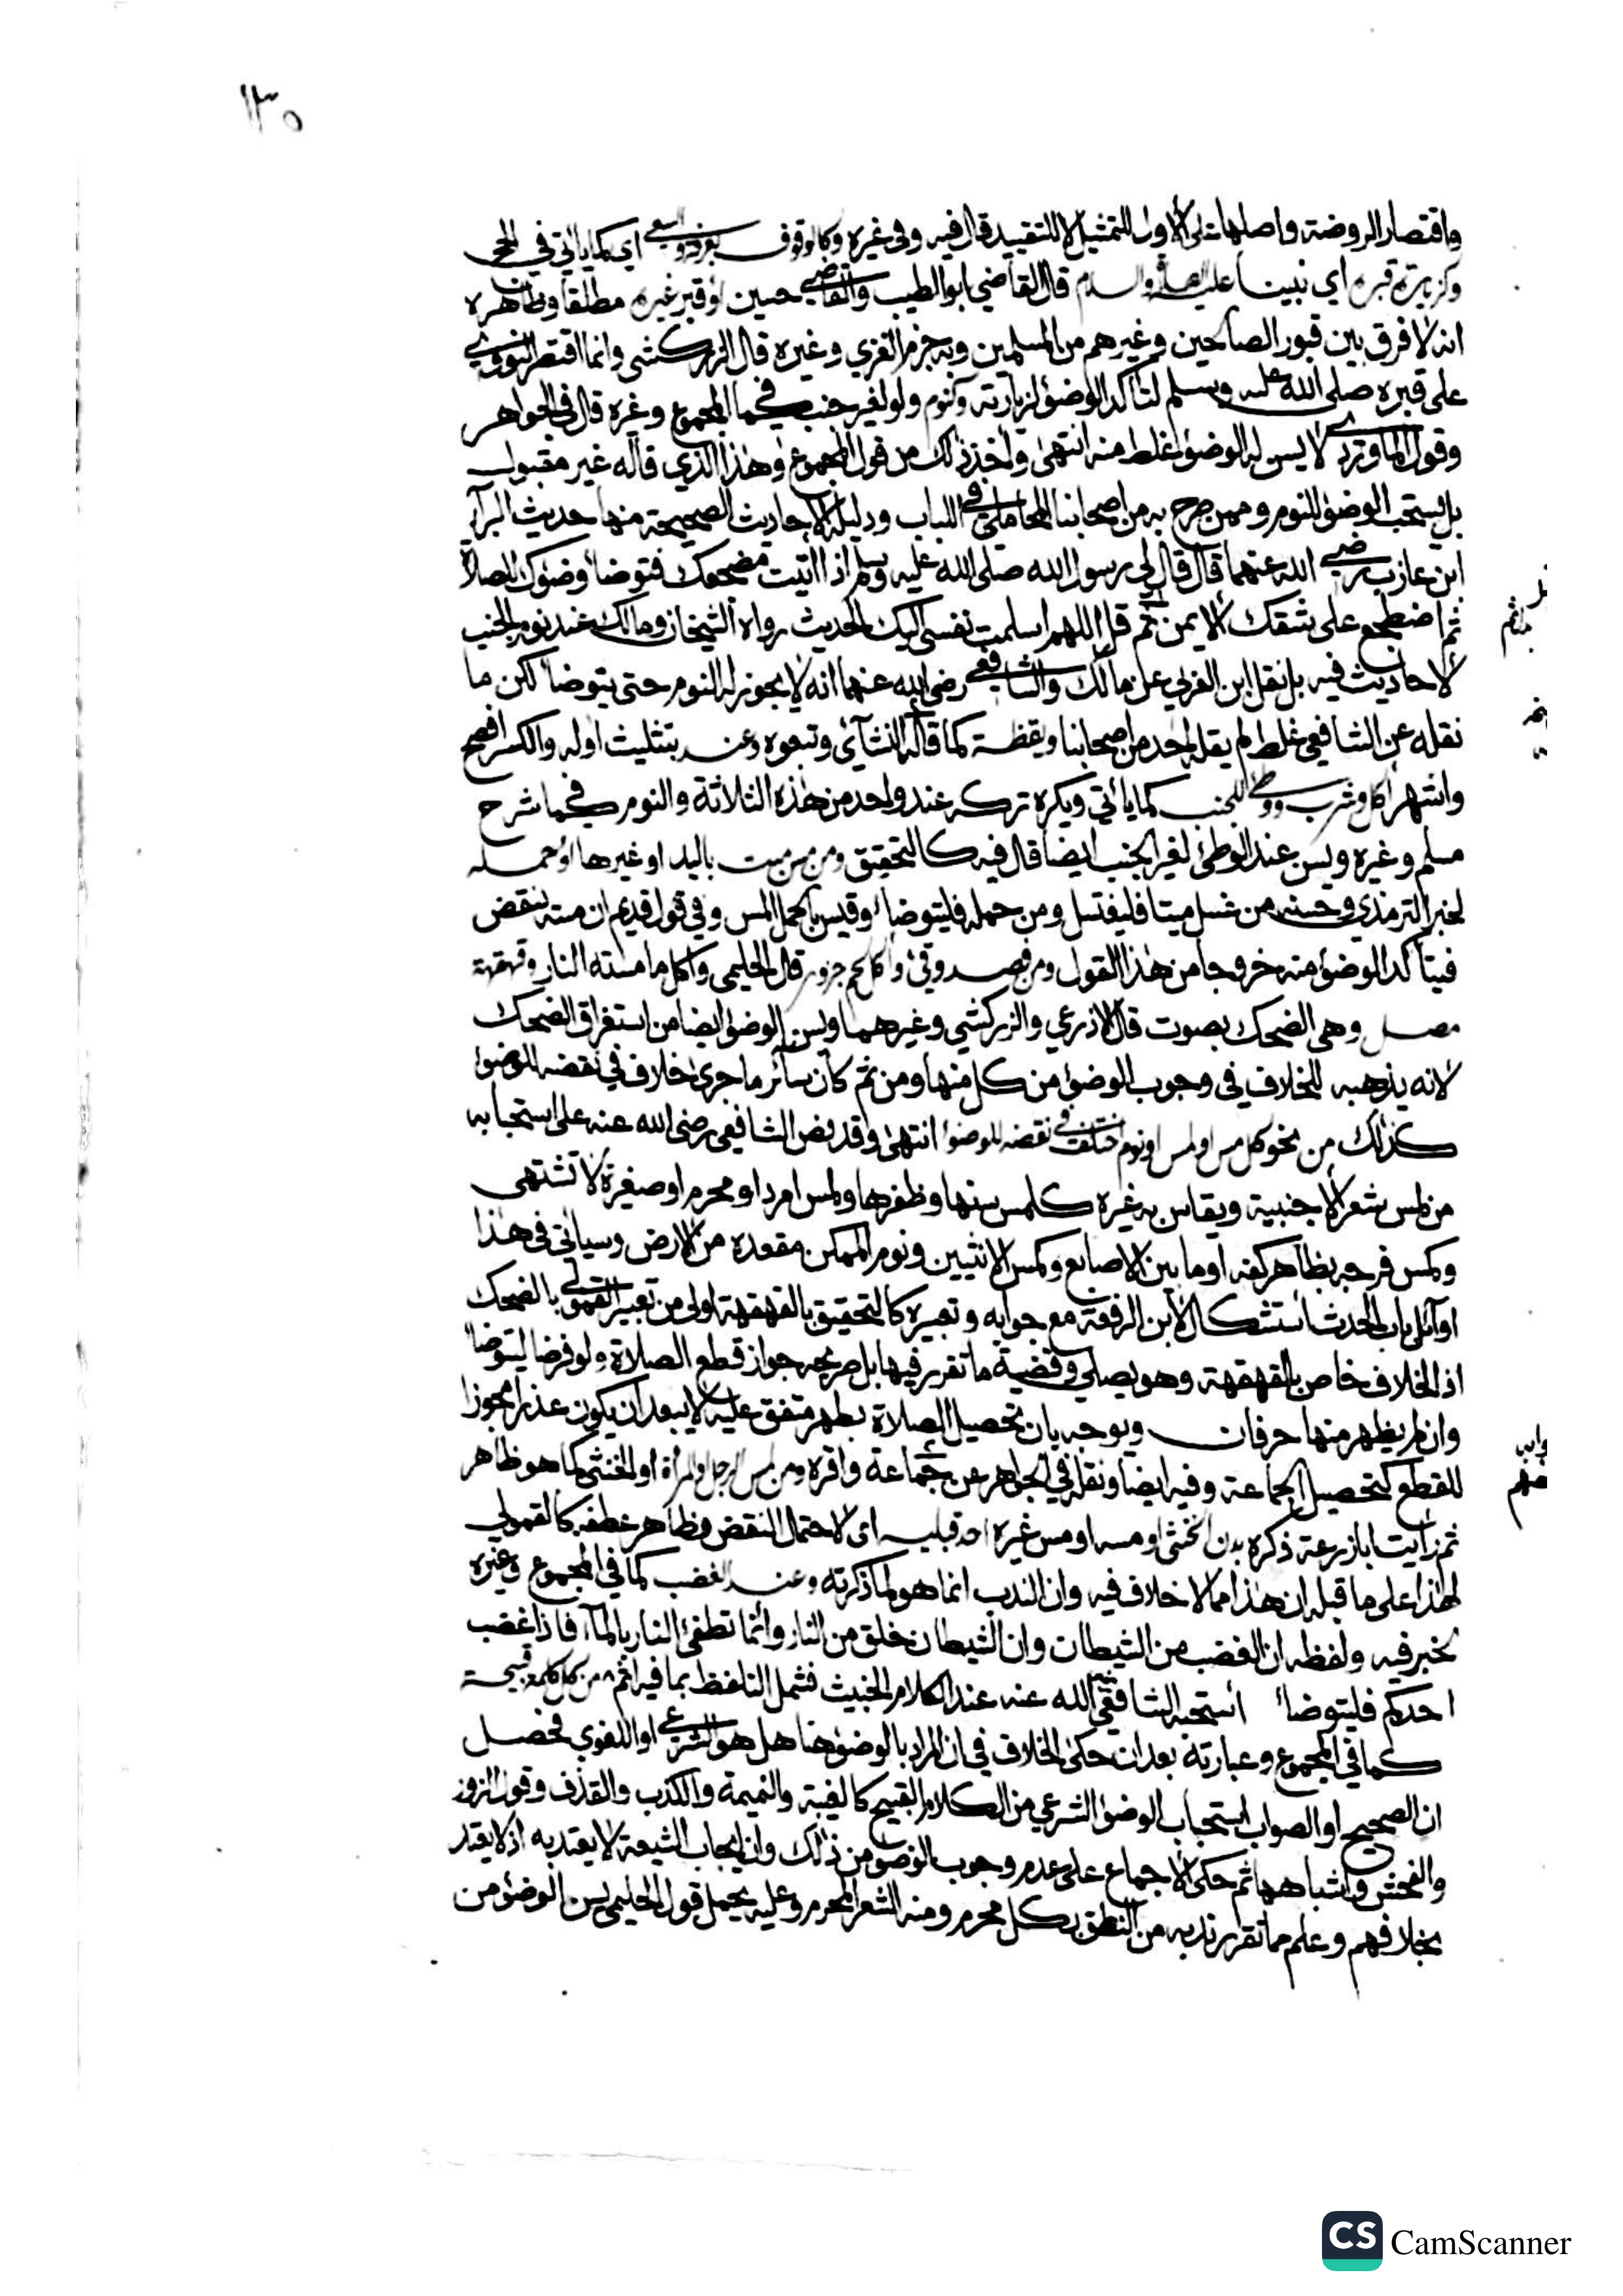 ١٣٥
واقتصار الروضة واصلها على الأول للتمثيل لا للتقييد قال فيه وفي غيره وكالوقوف بعرفة والسعي اي كما ياتي في الحج
وكزيارة قبره اي نبينا عليه الصلاة والسلام قال القاضي ابو الطيب والقاضي حسين او قبر غيره مطلقا وظاهره
انه لا فرق بين قبور الصالحين وغيرهم من المسلمين وبه جزم الغزي وغيره قال الزركشي وانما اقتصر النووي
على قبره صلى الله عليه وسلم لتأكد الوضوء لزيارته وكنوم ولو لغير جنب كما في المجموع وغيره قال في الجواهر
وقول الماوردي لا يسن له الوضوء غلط منه انتهى واخذ ذلك من قول المجموع وهذا الذي قاله غير مقبول
بل يستحب الوضوء للنوم وممن صرح به من اصحابنا المحاملي في اللباب ودليله الاحاديث الصحيحة منها حديث البرآء
ابن عازب رضي الله عنهما قال قال لي رسول الله صلى الله عليه وسلم اذا اتيت مضجعك فتوضأ وضوءك للصلاة
ثم اضطجع على شقك الايمن ثم قل اللهم اسلمت نفسي اليك الحديث رواه الشيخان وما لك عند نوم الجنب
لاحاديث فيه بل نقل ابن العربي عن مالك والشافعي رضي الله عنهما انه لا يجوز له النوم حتى يتوضأ لكن ما
نقله عن الشافعي غلط لم يقله احد من اصحابنا ويقظة كما قاله النشآئي وتبعوه وعند بتثليث اوله والكسر افصح
واشهر اكل وشرب ووطي لجنب كما يأتي ويكره تركه عند واحد من هذه الثلاثة والنوم كما في شرح
مسلم وغيره ويسن عند الوطئ لغير الجنب ايضا قال فيه كالتحقيق ومن مس ميت باليد او غيرها او حمله
لخبر الترمذي وحسنه من غسل ميتا فليغتسل ومن حمله فليتوضأ وقيس بالحمل المس وفي قول قديم ان مسه ينقض
فيتأكد الوضوء منه خروجا من هذا القول ومن فصد وقئ واكل لحم جزور قال الحليمي واكل ما مسته النار وقهقهة
مصل وهي الضحك بصوت قال الاذرعي والزركشي وغيرهما ويسن الوضوء ايضا من استغراق الضحك
لانه يذهبه للخلاف في وجوب الوضوء من كل منها ومن ثم كان سائر ما جرى خلاف في نقضه للوضوء
كذلك من نحو كل مس او لمس او نوم اختلف في نقضه للوضوء انتهى وقد نص الشافعي رضي الله عنه على استحبابه
من لمس شعر الاجنبية ويقاس به غيره كلمس سنها وظفرها ولمس امرد او محرم او صغيرة لا تشتهى
وكمس فرجه بظاهر كفه او ما بين الاصابع وكمس الانثيين ونوم الممكن مقعده من الارض وسيأتي في هذا
اوآئل باب الحدث استشكال لابن الرفعة مع جوابه وتعبيره كالتحقيق بالقهقهة اولى من تعبير القمولي بالضحك
اذ الخلاف خاص بالقهقهة وهو يصلي وقضية ما تقرر فيها بل صريحه جواز قطع الصلاة ولو فرضا ليتوضأ
وان لم يظهر منها حرفان ويوجه بان تحصيل الصلاة بطهر متفق عليه لا يبعد ان يكون عذرا مجوزا
للقطع كتحصيل الجماعة وفيه ايضا ونقله في الجواهر عن جماعة واقره ومن لمس الرجل والمرأة او الخنثى كما هو ظاهر
ثم رأيت ابا زرعة ذكره بدن الخنثى او مسه او مس غيره احد قبليه اي لاحتمال النقض وظاهر عطفه كالقمولي
لهذا على ما قبله ان هذا مما لا خلاف فيه وان الندب انما هو لما ذكرته وعند الغضب كما في المجموع وغيره
لخبر فيه ولفظه ان الغضب من الشيطان وان الشيطان خلق من النار وانما تطفئ النار بالمآء فاذا غضب
احدكم فليتوضأ استحبه الشافعي رضي الله عنه عند الكلام الخبيث فشمل التلفظ بما فيه اثم من كل كلمة قبيحة
كما في المجموع وعبارته بعد ان حكى الخلاف في ان المراد بالوضوء هنا هل هو الشرعي او اللغوي فحصل
ان الصحيح او الصواب استحباب الوضوء الشرعي من الكلام القبيح كالغيبة والنميمة والكذب والقذف وقول الزور
والفحش واشباهها ثم حكى الاجماع على عدم وجوب الوضوء من ذلك وان ايجاب الشيعة لا يعتد به اذ لا يعتد
بخلافهم وعلم مما تقرر ندبه من النطق بكل محرم ومنه الشعر المحرم وعليه يحمل قول الحليمي يسن الوضوء من
CS CamScanner